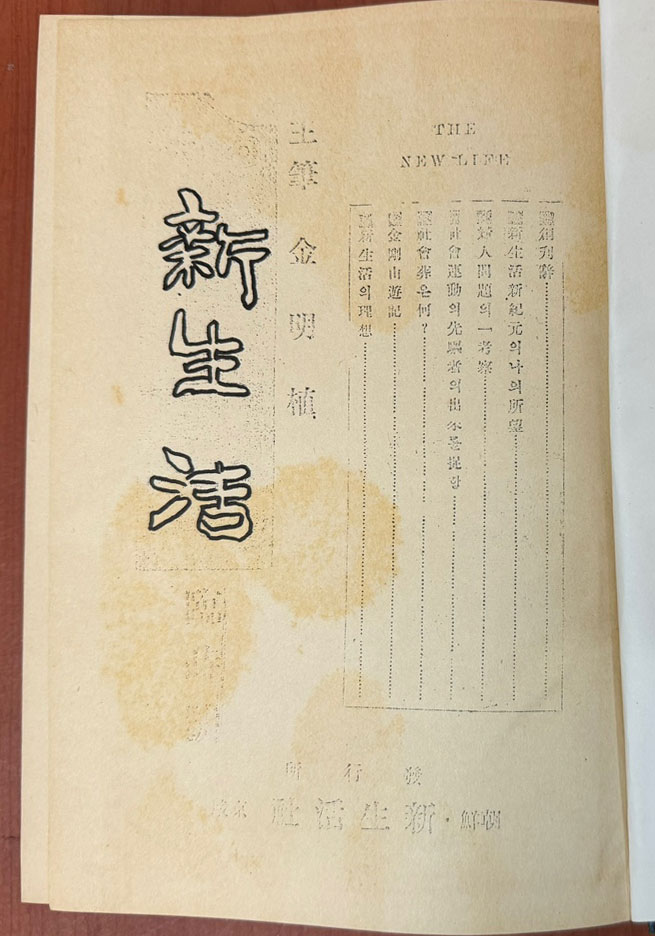 THE
NEW LIFE
創刊辭
新生活新紀元의 나의 所望
婦人問題의 一考察
社會運動의 先驅者의 出來를 促함
社會葬은 何?
金剛山遊記
新生活의 理想
主筆 金明植
新生活
臨時號
發行所
朝鮮·新生活社 京城